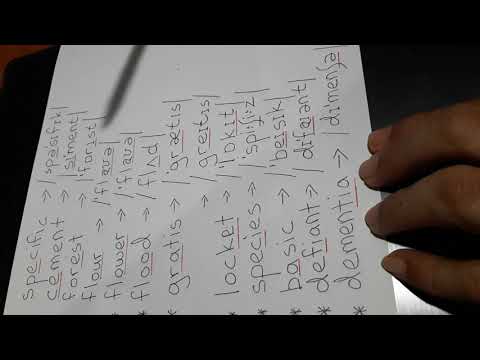 specific → |spəsifik|
cement → |siment|
forest → |forist|
flour → /'flauə/
flower → /'flauə/
* flood → /flʌd/
* gratis → /'grætis/
/greitis/
* locket → |lokit|
* species → |'spi:ʃi:z|
* basic → |'beisik|
* defiant → |difaiənt|
* dementia → |dimenʃə|